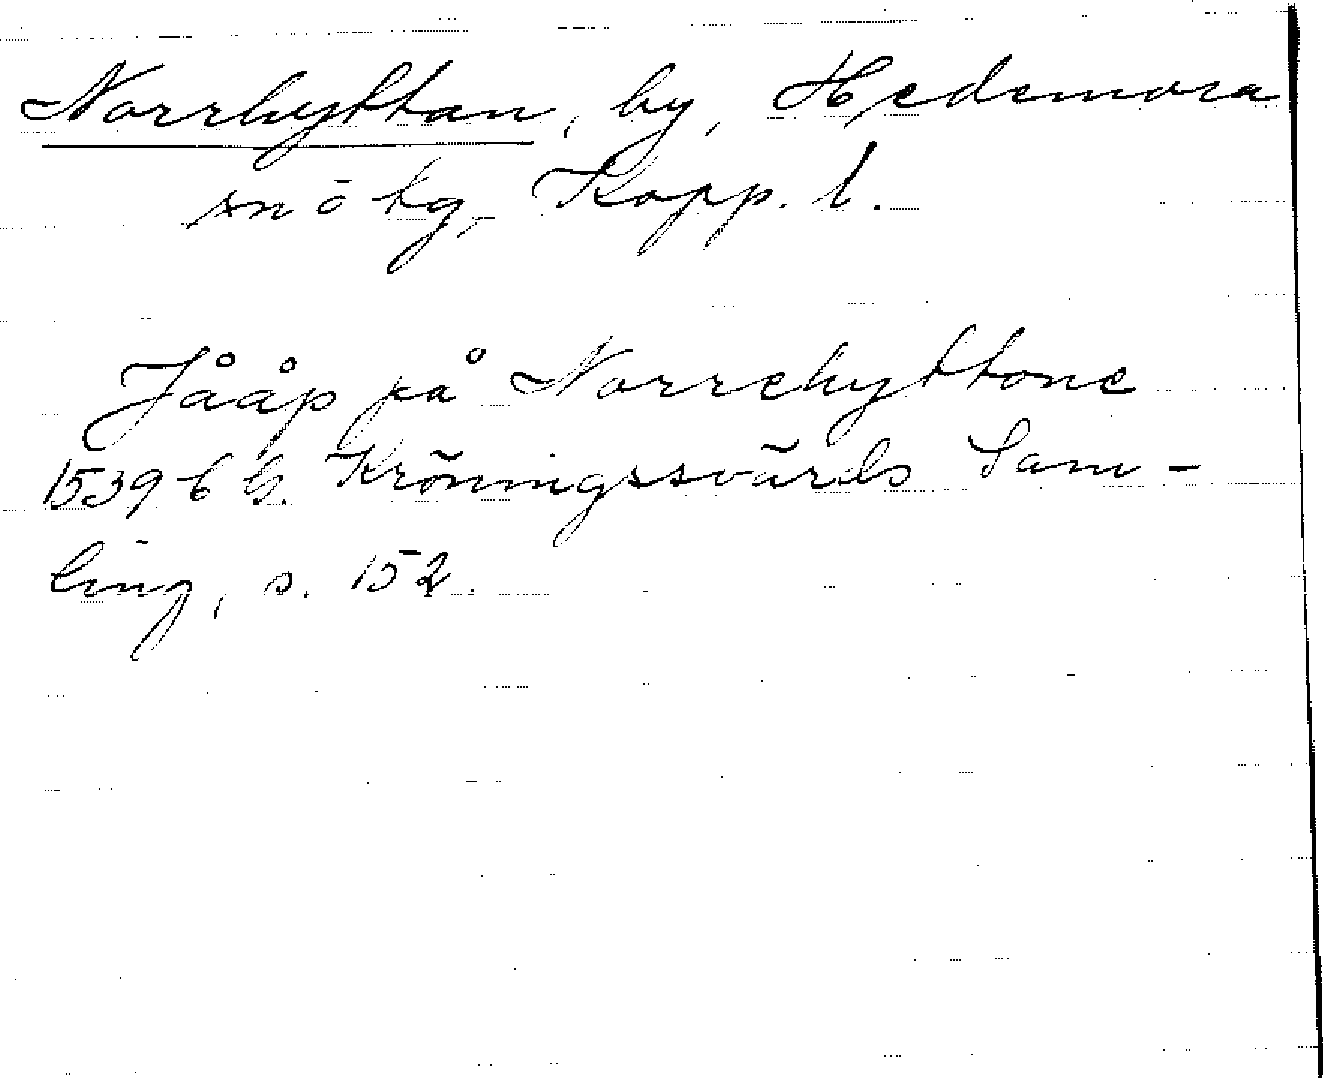 Norrhyttan, by, Hedemora
sn o tg, Kopp. l.
Jååp på Norrehyttone
1539 6/6. Kröningssvärds Sam-
ling, s. 152.